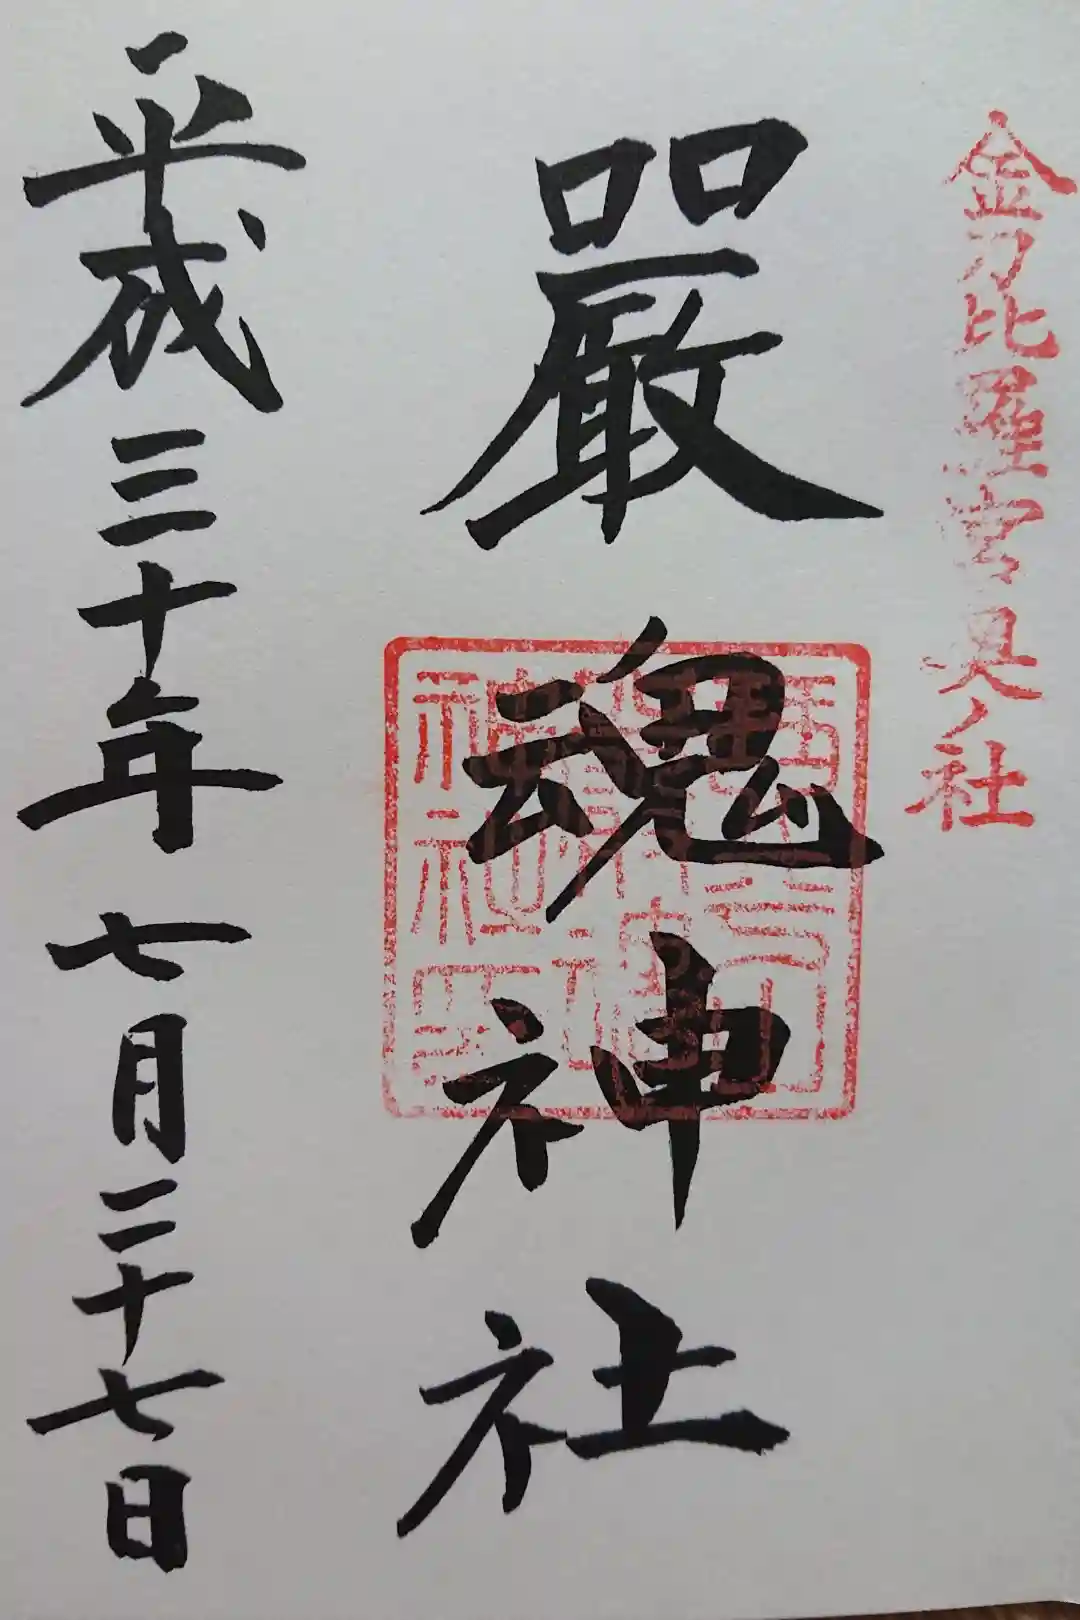 金刀比羅宮奥ノ社
嚴魂神社
平成三十年七月二十七日